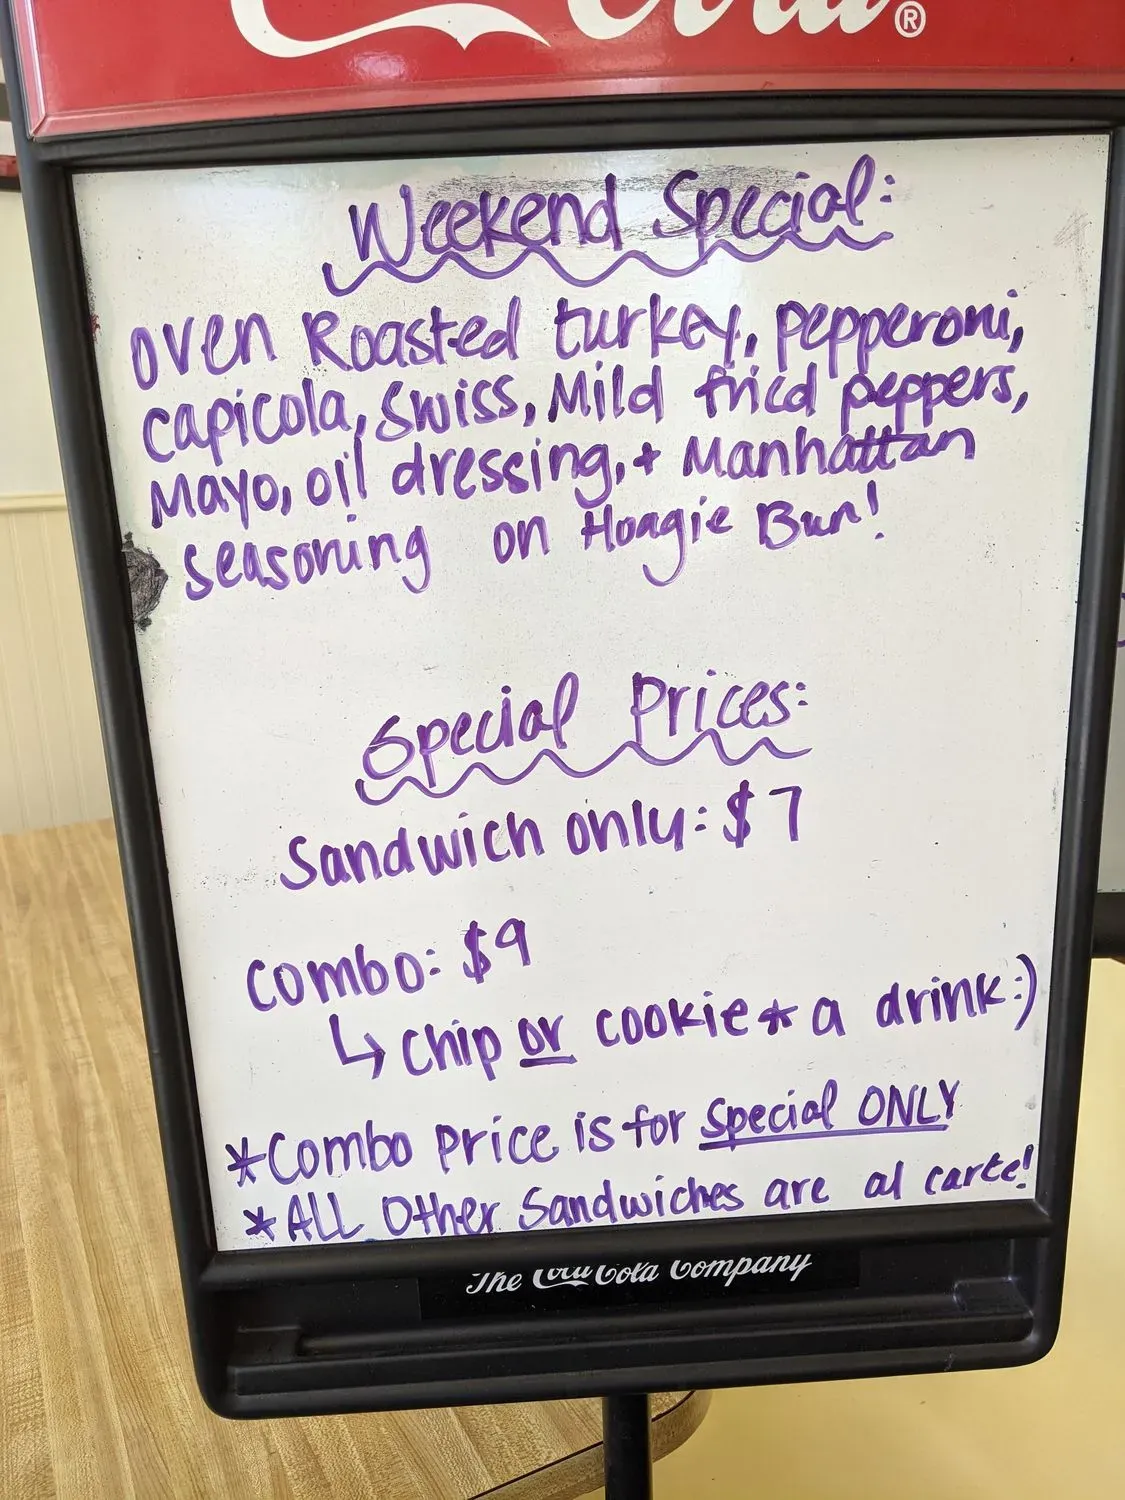 Cola®
Weekend Special:
oven Roasted turkey, pepperoni,
capicola, Swiss, Mild fried peppers,
Mayo, oil dressing, + Manhattan
seasoning on Hoagie Bun!
Special Prices:
Sandwich only: $7
Combo: $9
↳ chip or cookie * a drink :)
*Combo price is for special ONLY
*ALL Other Sandwiches are al carte!
The Coca Cola Company